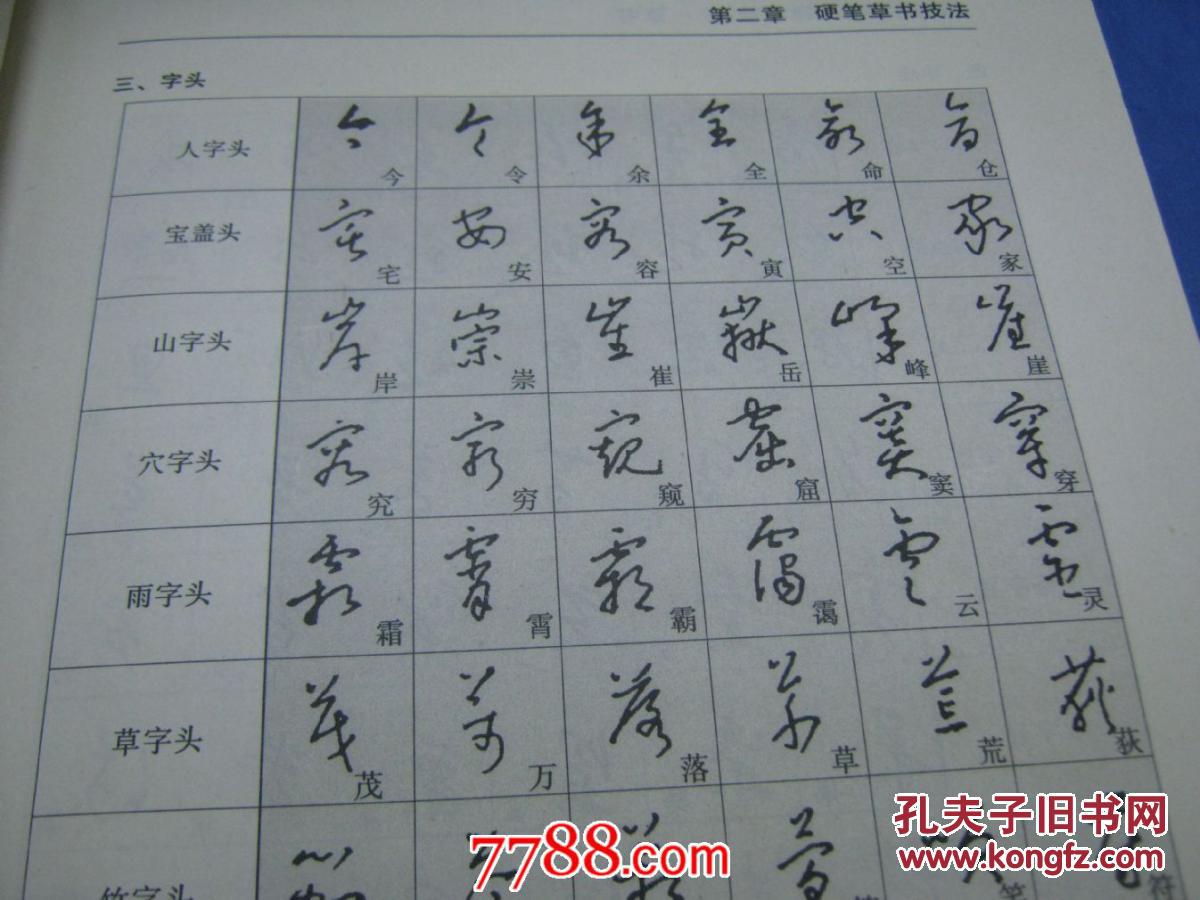 第二章 硬笔草书技法
三、字头
人字头 今 令 余 全 命 仓
宝盖头 宅 安 容 寅 空 家
山字头 岸 崇 崔 岳 峰 崖
穴字头 究 穷 窥 窟 窦 穿
雨字头 霜 霄 霸 霭 云 灵
草字头 茂 万 落 草 荒 荻
竹字头 笑 符
7788.com
孔夫子旧书网
www.kongfz.com